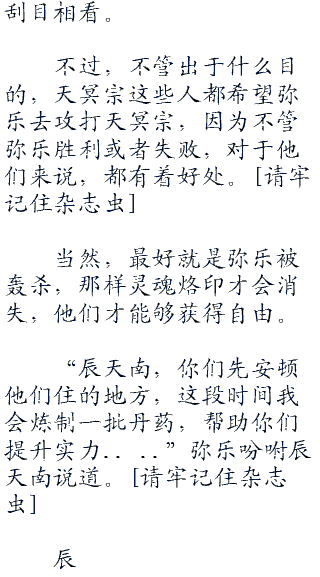 刮目相看。
不过，不管出于什么目
的，天冥宗这些人都希望弥
乐去攻打天冥宗，因为不管
弥乐胜利或者失败，对于他
们来说，都有着好处。[请牢
记住杂志虫]
当然，最好就是弥乐被
轰杀，那样灵魂烙印才会消
失，他们才能够获得自由。
“辰天南，你们先安顿
他们住的地方，这段时间我
会炼制一批丹药，帮助你们
提升实力.. ..”弥乐吩咐辰
天南说道。[请牢记住杂志
虫]
辰